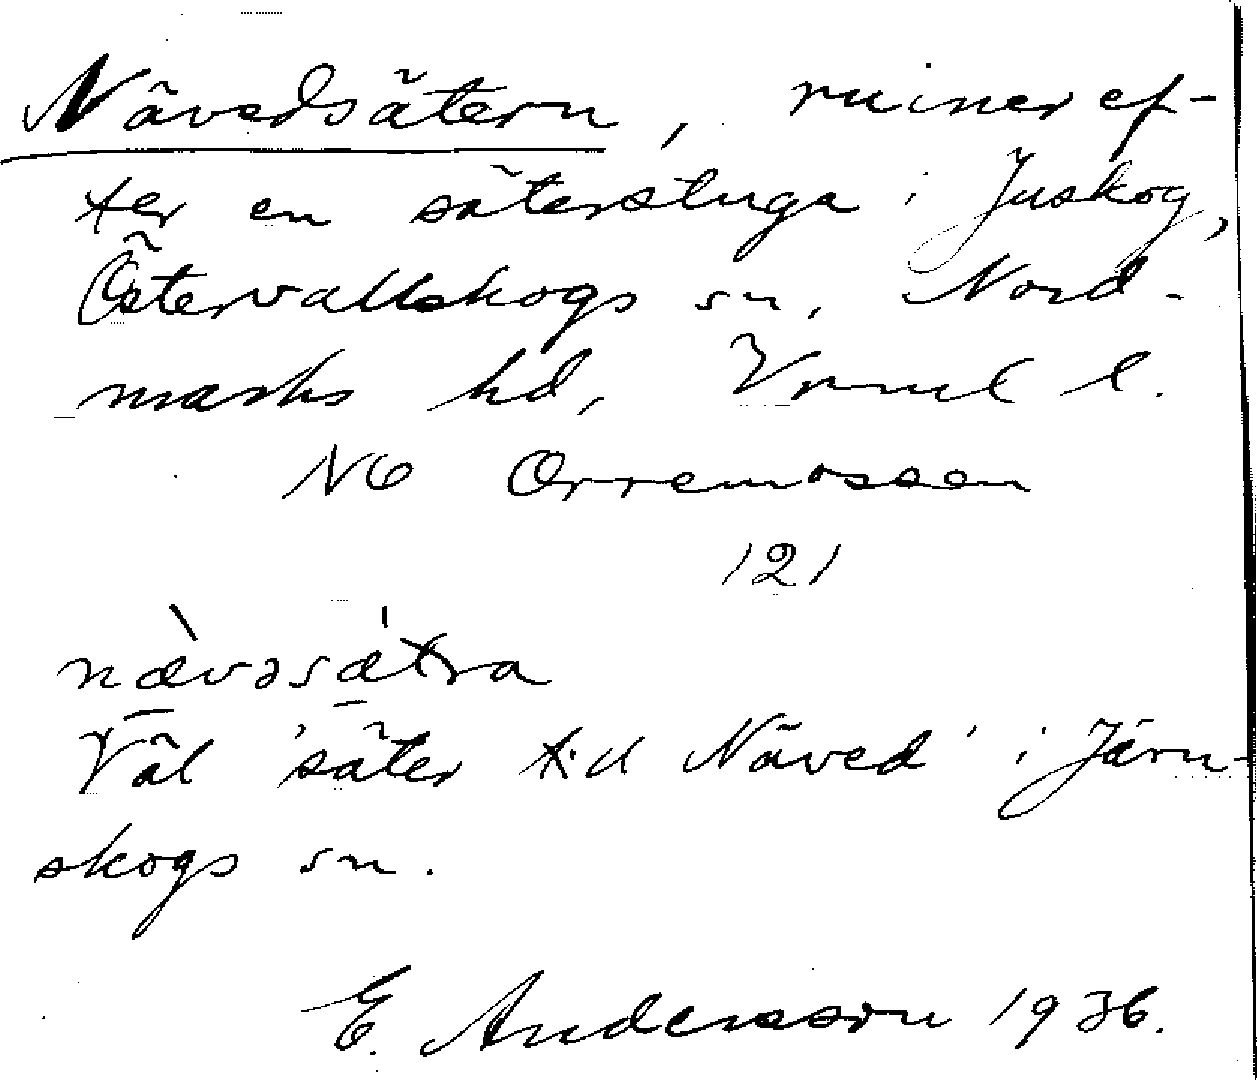 Nävedsätern, ruiner ef-
ter en säterstuga i Juskog,
Östervallskogs sn, Nord-
marks hd, Vrml l.
NO Orremossen
121
nævəsætra
Väl 'säter till Näved' i Järn-
skogs sn.
E. Andersson 1936.